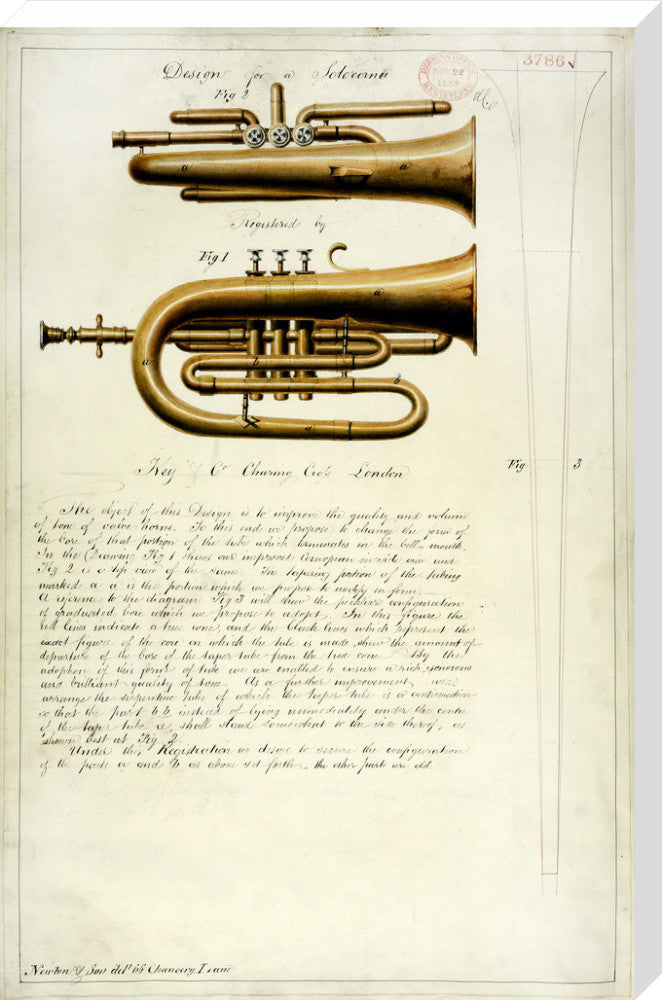 3786
DESIGNS OFFICE
NOV 22
REGISTERED
Design for a Solocornu
Fig 2
a a
Registered by
Fig 1
a
a b b
a
Key & Co Charing Cross London
Fig 3
The object of this Design is to improve the quality and volume
of tone of valve horns. To this end we propose to change the form of
the bore of that portion of the tube which terminates in the bell mouth.
In the Drawing Fig 1 shews our improved Cornopean in side view and
Fig 2 is a top view of the same. The tapering portion of the tubing
marked a a is the portion which we propose to modify in form.
A reference to the diagram Fig 3 will shew the peculiar configuration
of graduated bore which we propose to adopt. In this figure the
red lines indicate a true cone, and the black lines which represent the
exact figure of the core on which the tube is made shew the amount of
departure of the bore of the taper tube from the true cone. By the
adoption of this form of tube we are enabled to ensure a rich, sonorous
and brilliant quality of tone. As a further improvement we
arrange the serpentine tube of which the taper tube is a continuation
so that the part b b, instead of lying immediately under the centre
of the taper tube a, shall stand somewhat to the side thereof, as
shewn best at Fig 2
Under this Registration we desire to secure the configuration
of the parts a and b as above set forth - the other parts are old.
Newton & Son delt 66 Chancery Lane